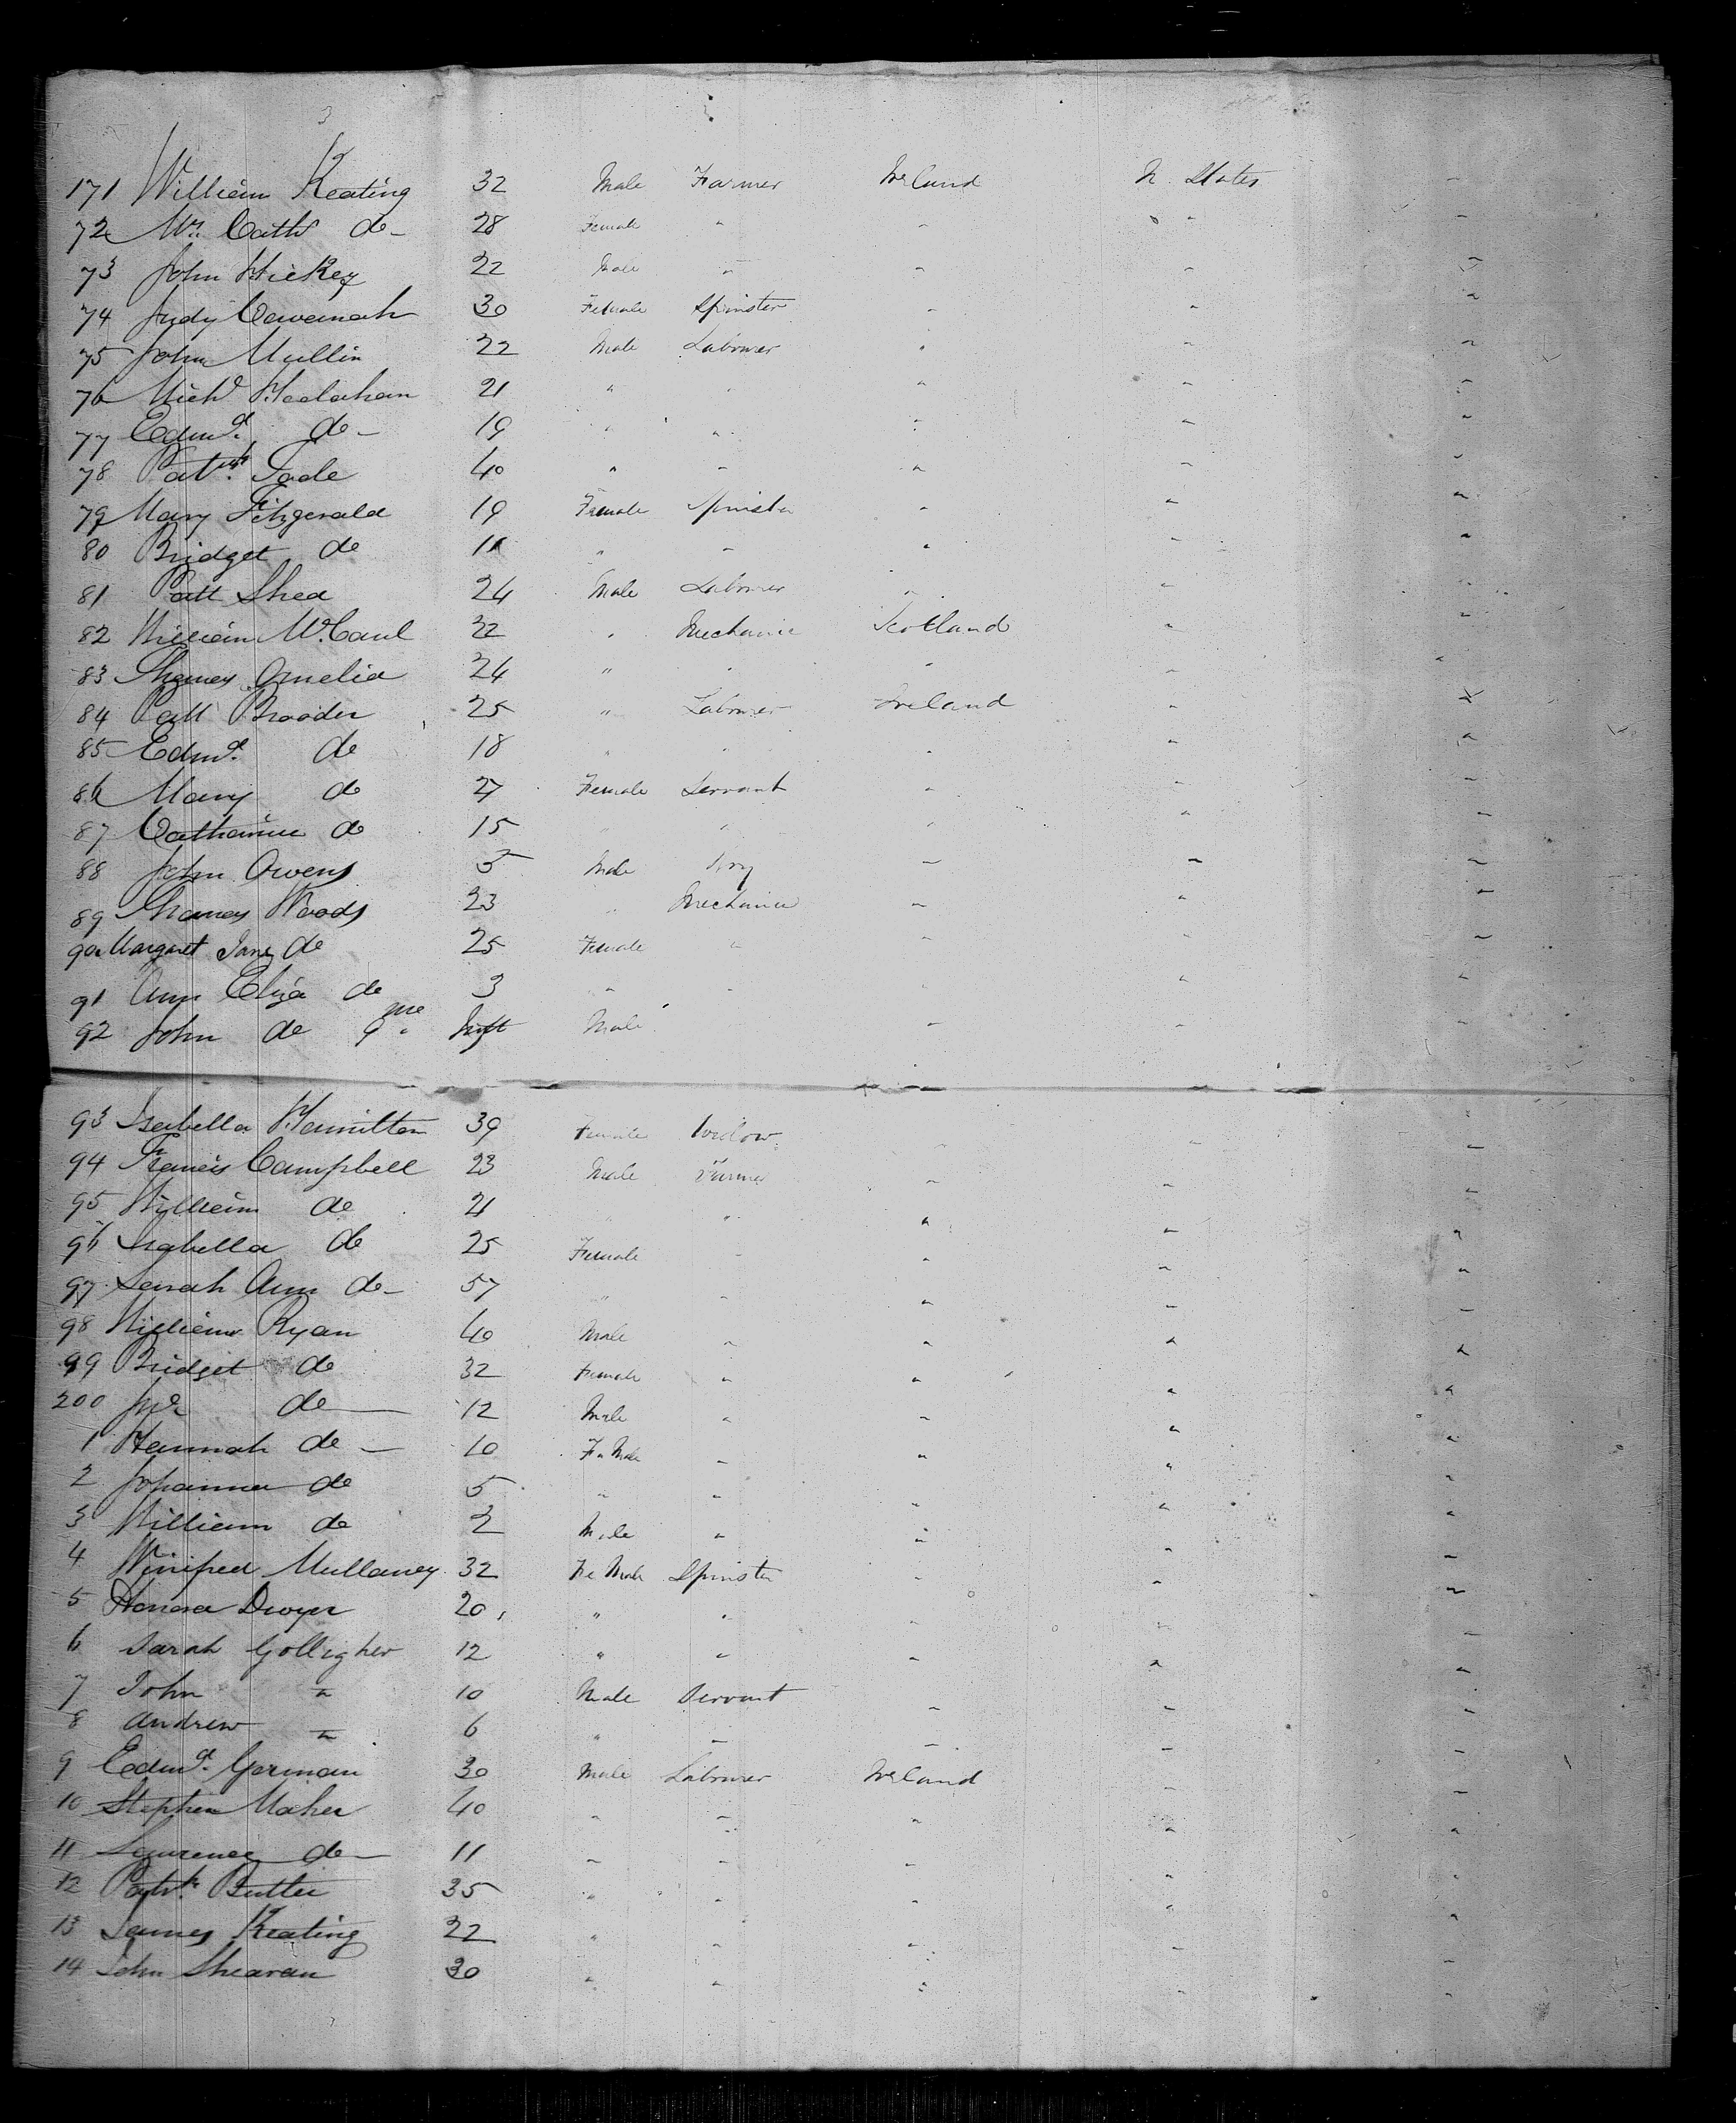 3
171 William Keating 32 Male Farmer Ireland U. States
72 Mrs. Cath do - 28 Female " " "
73 John Hickey 22 Male " " " "
74 Judy Cavanah 30 Female Spinster " " "
75 John Mullin 22 Male Labourer " " "
76 Michl 21 " " " " "
77 Edmd. do - 19 " " " " "
78 Patrk. 40 " " " " "
79 Mary Fitzgerald 19 Female Spinster " " "
80 Bridget do " " " " "
81 Patt Shea 24 Male Labourer " " "
82 William McCaul 22 " Mechanic Scotland " "
83 24 " " " " "
84 Patt Brooder 25 " Labourer Ireland "
85 Edmd. do 18 " " " " "
86 Mary do 27 Female Servant " " "
87 Catharine do 15 " " " " "
88 John Owens 5 Male " " "
89 Woods 23 " Mechanic " " "
90 Margaret Jane do 25 Female " " " "
91 Ann Eliza do 3 " " " " "
92 John do 9 Inft Male " " "
93 Isabella Hamilton 39 Female Widow " " "
94 Francis Campbell 23 Male Farmer " " "
95 William do 21 " " " " "
96 Isabella do 25 Female " " " "
97 Sarah Ann do - 57 " " " " "
98 William Ryan 40 Male " " " "
99 Bridget do 32 Female " " " "
200 do 12 Male " " " "
1 Hannah do - 10 Fe Male " " " "
2 Johanna do 5 " " " " "
3 William do 2 Male " " " "
4 Winifred Mullaney 32 Fe Male Spinster " " "
5 Honora Dwyer 20 " " " " "
6 Sarah Golligher 12 " " " " "
7 John " 10 Male Servant " " "
8 Andrew " 6 " " " " "
9 Edmd. Gorman 30 Male Labourer Ireland " "
10 Stephen Maher 40 " " " " "
11 Lawrence do - 11 " " " " "
12 Patrk. Butler 35 " " " " "
13 James Keating 22 " " " " "
14 John Shearan 30 " " " " "